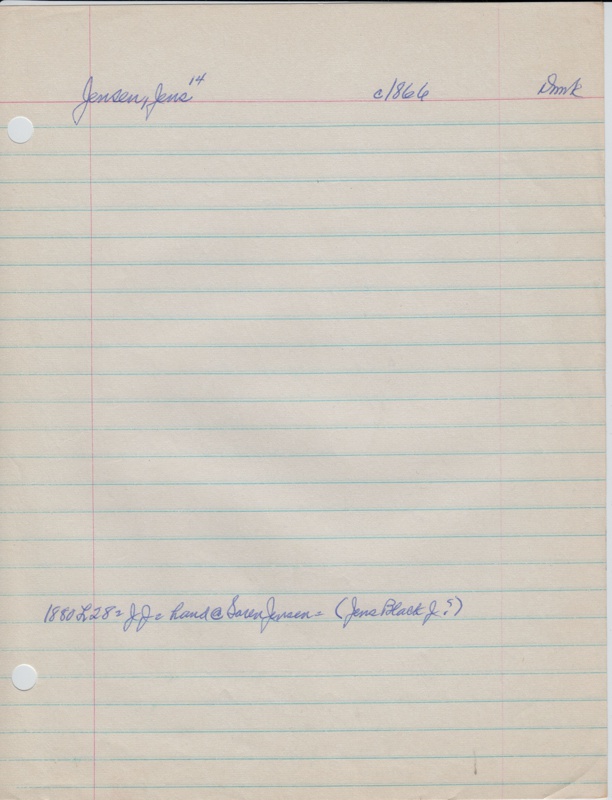 Jensen, Jens 14 c1866 Dmk
1880 L28 = J.J = hand @ Soren Jensen = (Jens Black J. ?)